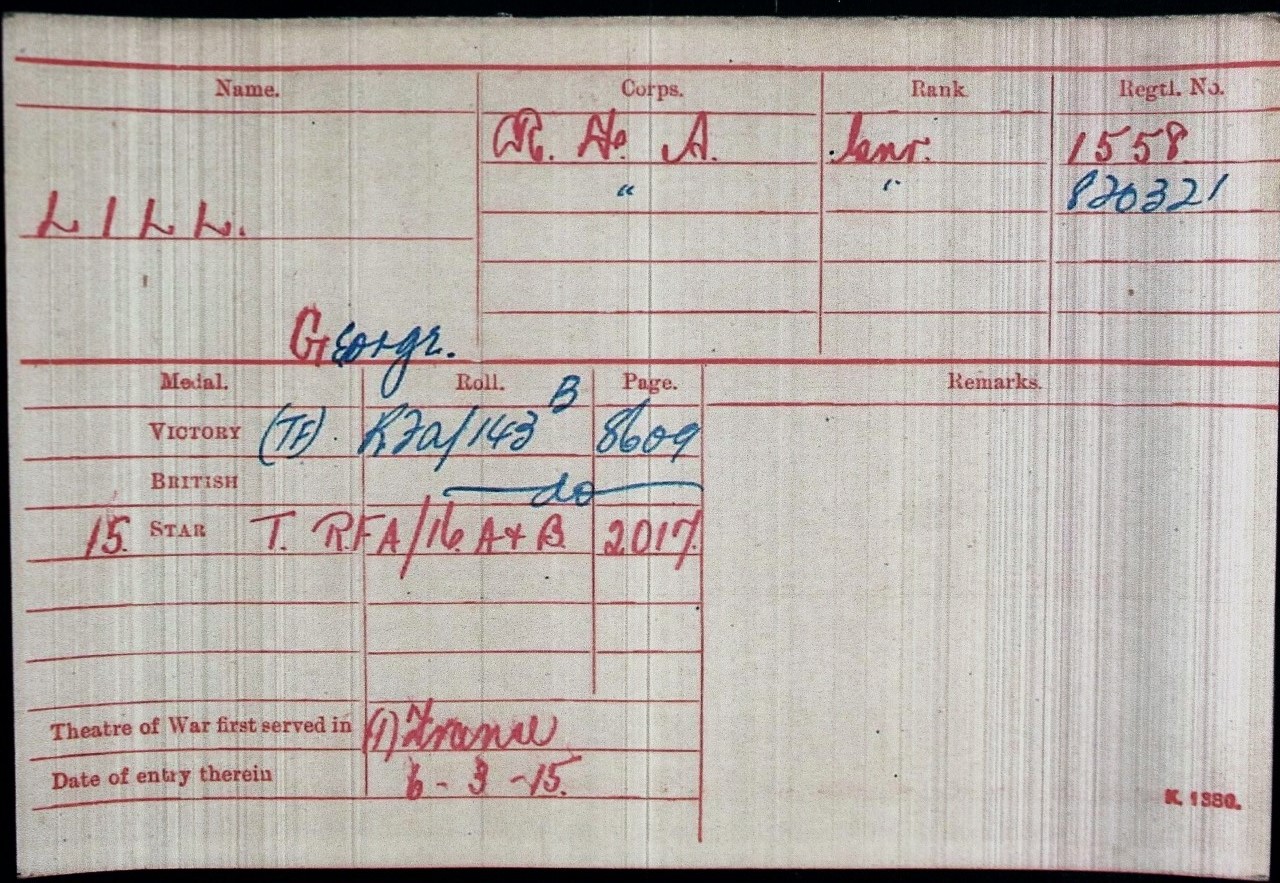 Name. Corps. Rank. Regtl. No.
R. F. A. Gnr. 1558
" " 820321
LILL.
George.
Medal. Roll. Page. Remarks.
VICTORY (TF). RFA/143 B 8609
BRITISH do
15 STAR T. RFA/16 A+B 2017
Theatre of War first served in (1) France
Date of entry therein 6-3-15.
K. 1380.